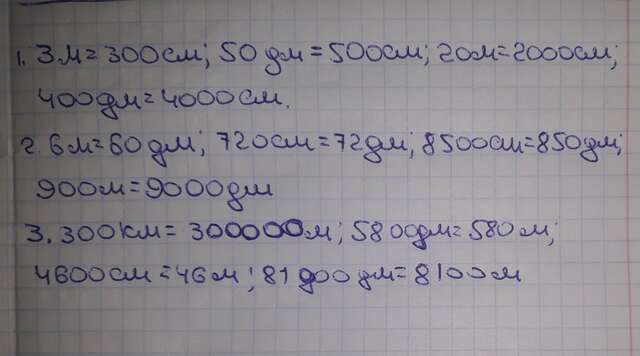 1. 3 м = 300 см; 50 дм = 500 см; 20 м = 2000 см;
400 дм = 4000 см.
2. 6 м = 60 дм; 720 см = 72 дм; 8500 см = 850 дм;
900 м = 9000 дм
3. 300 км = 300000 м; 5800 дм = 580 м;
4600 см = 46 м; 81 000 дм = 8100 м